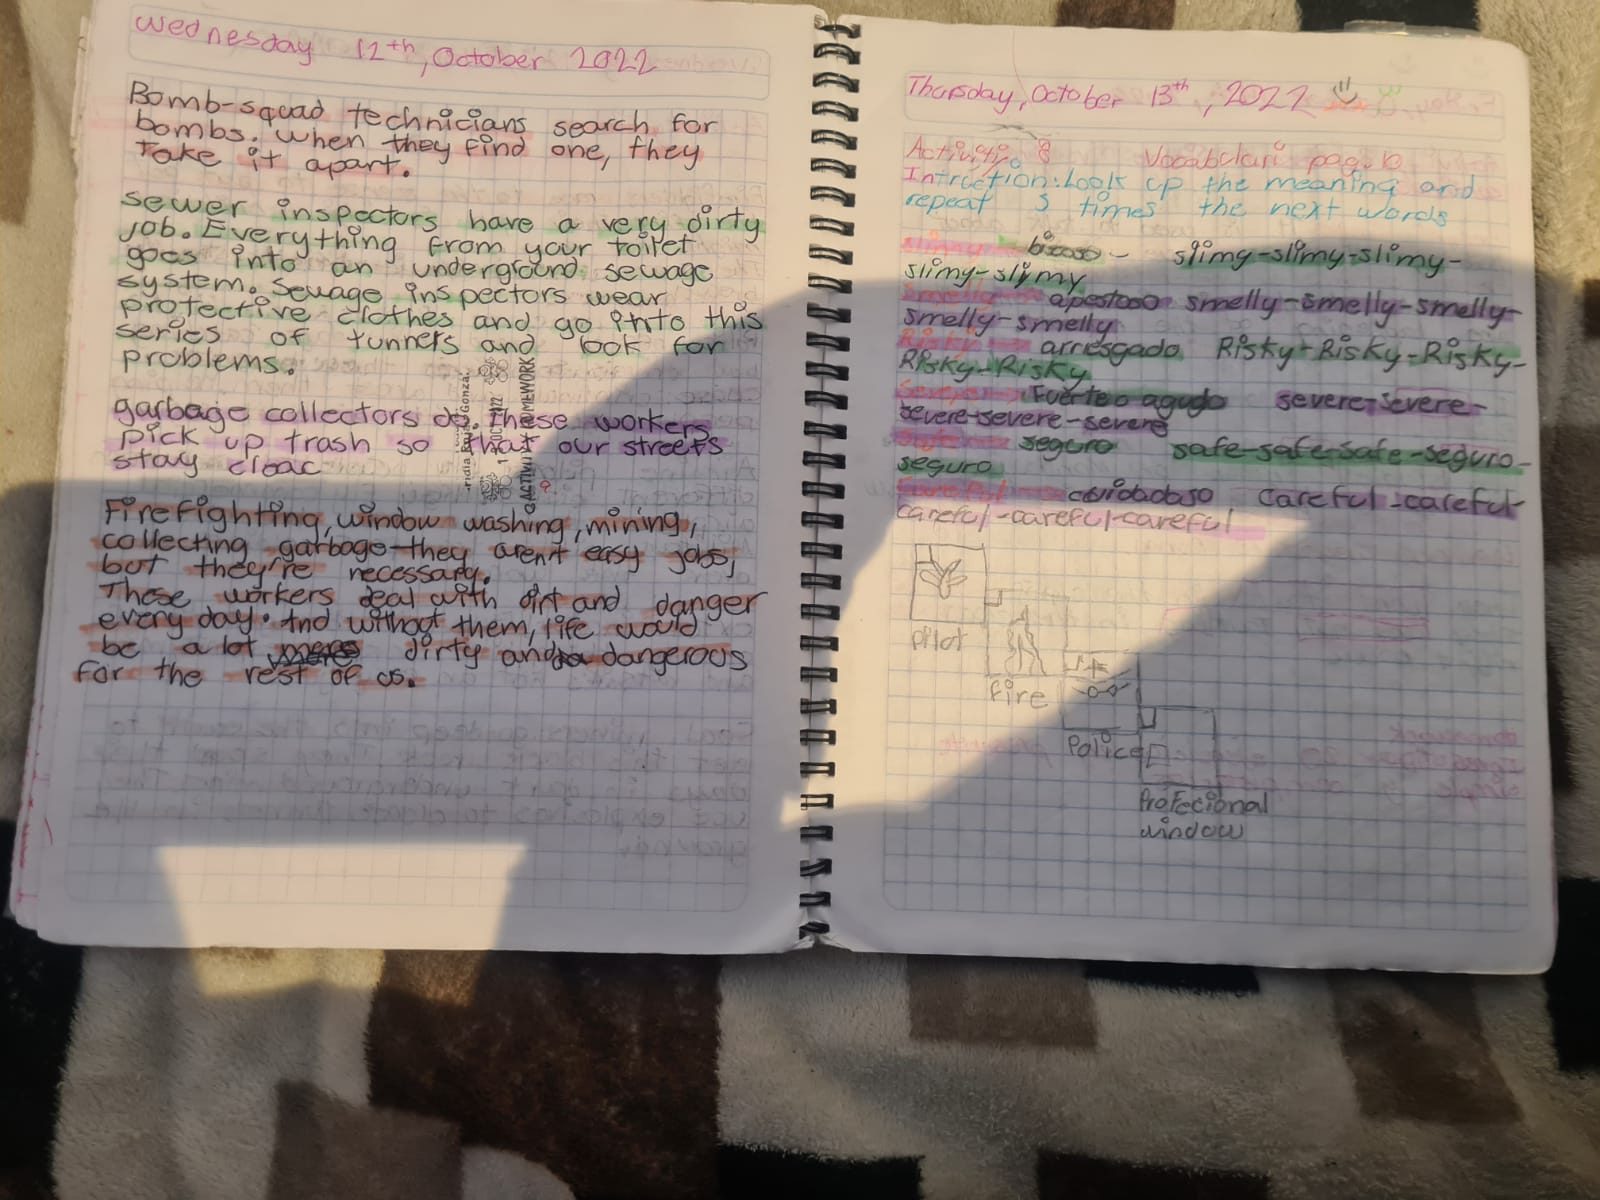 Wednesday 12th, October 2022
Bomb-squad technicians search for
bombs. When they find one, they
take it apart.
sewer inspectors have a very dirty
job. Everything from your toilet
goes into an underground sewage
system. Sewage inspectors wear
protective clothes and go into this
series of tunners and look for
problems.
garbage collectors do. These workers
pick up trash so that our streets
stay cleac
Firefighting, window washing, mining,
collecting garbage-they aren't easy jobs,
but they're necessary.
These workers deal with dirt and danger
every day. And without them, life would
be a lot dirty and dangerous
for the rest of us.
ACTIVITY HOMEWORK
Thursday, October 13th, 2022
Activity 8 Vocabulari pag. 6
Intruction: Look up the meaning and
repeat 5 times the next words
slimy slimy-slimy-slimy-
slimy-slimy
Smelly apestoso smelly-smelly-smelly-
smelly-smelly
Risky arriesgado Risky-Risky-Risky-
Risky-Risky
Severe Fuerte o agudo severe-severe-
severe-severe-severe
Safe seguro safe-safe-safe-seguro-
seguro
Careful cuidadoso careful-careful-
careful-careful-careful
pilot
Fire
Police
Profecional
window